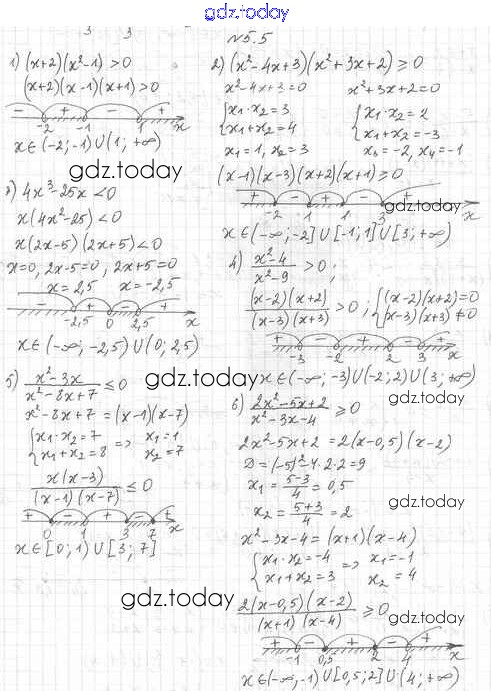 gdz.today
№5.5
1) (x+2)(x²-1)>0
(x+2)(x-1)(x+1)>0
- + - +
-2 -1 1 x
x∈(-2;-1)∪(1;+∞)
gdz.today
2) (x²-4x+3)(x²+3x+2)≥0
x²-4x+3=0 x²+3x+2=0
{x₁·x₂=3 {x₁·x₂=2
x₁+x₂=4 x₁+x₂=-3
x₁=1, x₂=3 x₃=-2, x₄=-1
(x-1)(x-3)(x+2)(x+1)≥0
gdz.today
+ - + - +
-2 1 1 3 x
x∈(-∞;-2]∪[-1;1]∪[3;+∞)
3) 4x³-25x<0
x(4x²-25)<0
x(2x-5)(2x+5)<0
x=0, 2x-5=0, 2x+5=0
x=2,5 x=-2,5
- + - +
-2,5 0 2,5 x
x∈(-∞;-2,5)∪(0;2,5)
4) x²-4/x²-9 >0;
(x-2)(x+2)/(x-3)(x+3) >0; {(x-2)(x+2)=0
(x-3)(x+3)≠0
+ - + - +
-3 -2 2 3 x
x∈(-∞;-3)∪(-2;2)∪(3;+∞)
gdz.today
gdz.today
5) x²-3x/x²-8x+7 ≤0
x²-8x+7=(x-1)(x-7)
{x₁·x₂=7 => x₁=1
x₁+x₂=8 x₂=7
x(x-3)/(x-1)(x-7) ≤0
+ - + - +
0 1 3 7 x
x∈[0;1)∪[3;7]
gdz.today
6) 2x²-5x+2/x²-3x-4 ≥0
2x²-5x+2=2(x-0,5)(x-2)
D=(-5)²-4·2·2=9
x₁=5-3/4=0,5
gdz.today
x₂=5+3/4=2
x²-3x-4=(x+1)(x-4)
{x₁·x₂=-4 => x₁=-1
x₁+x₂=3 x₂=4
2(x-0,5)(x-2)/(x+1)(x-4) ≥0
gdz.today
+ - + - +
-1 0,5 2 4 x
x∈(-∞;-1)∪[0,5;2]∪(4;+∞)